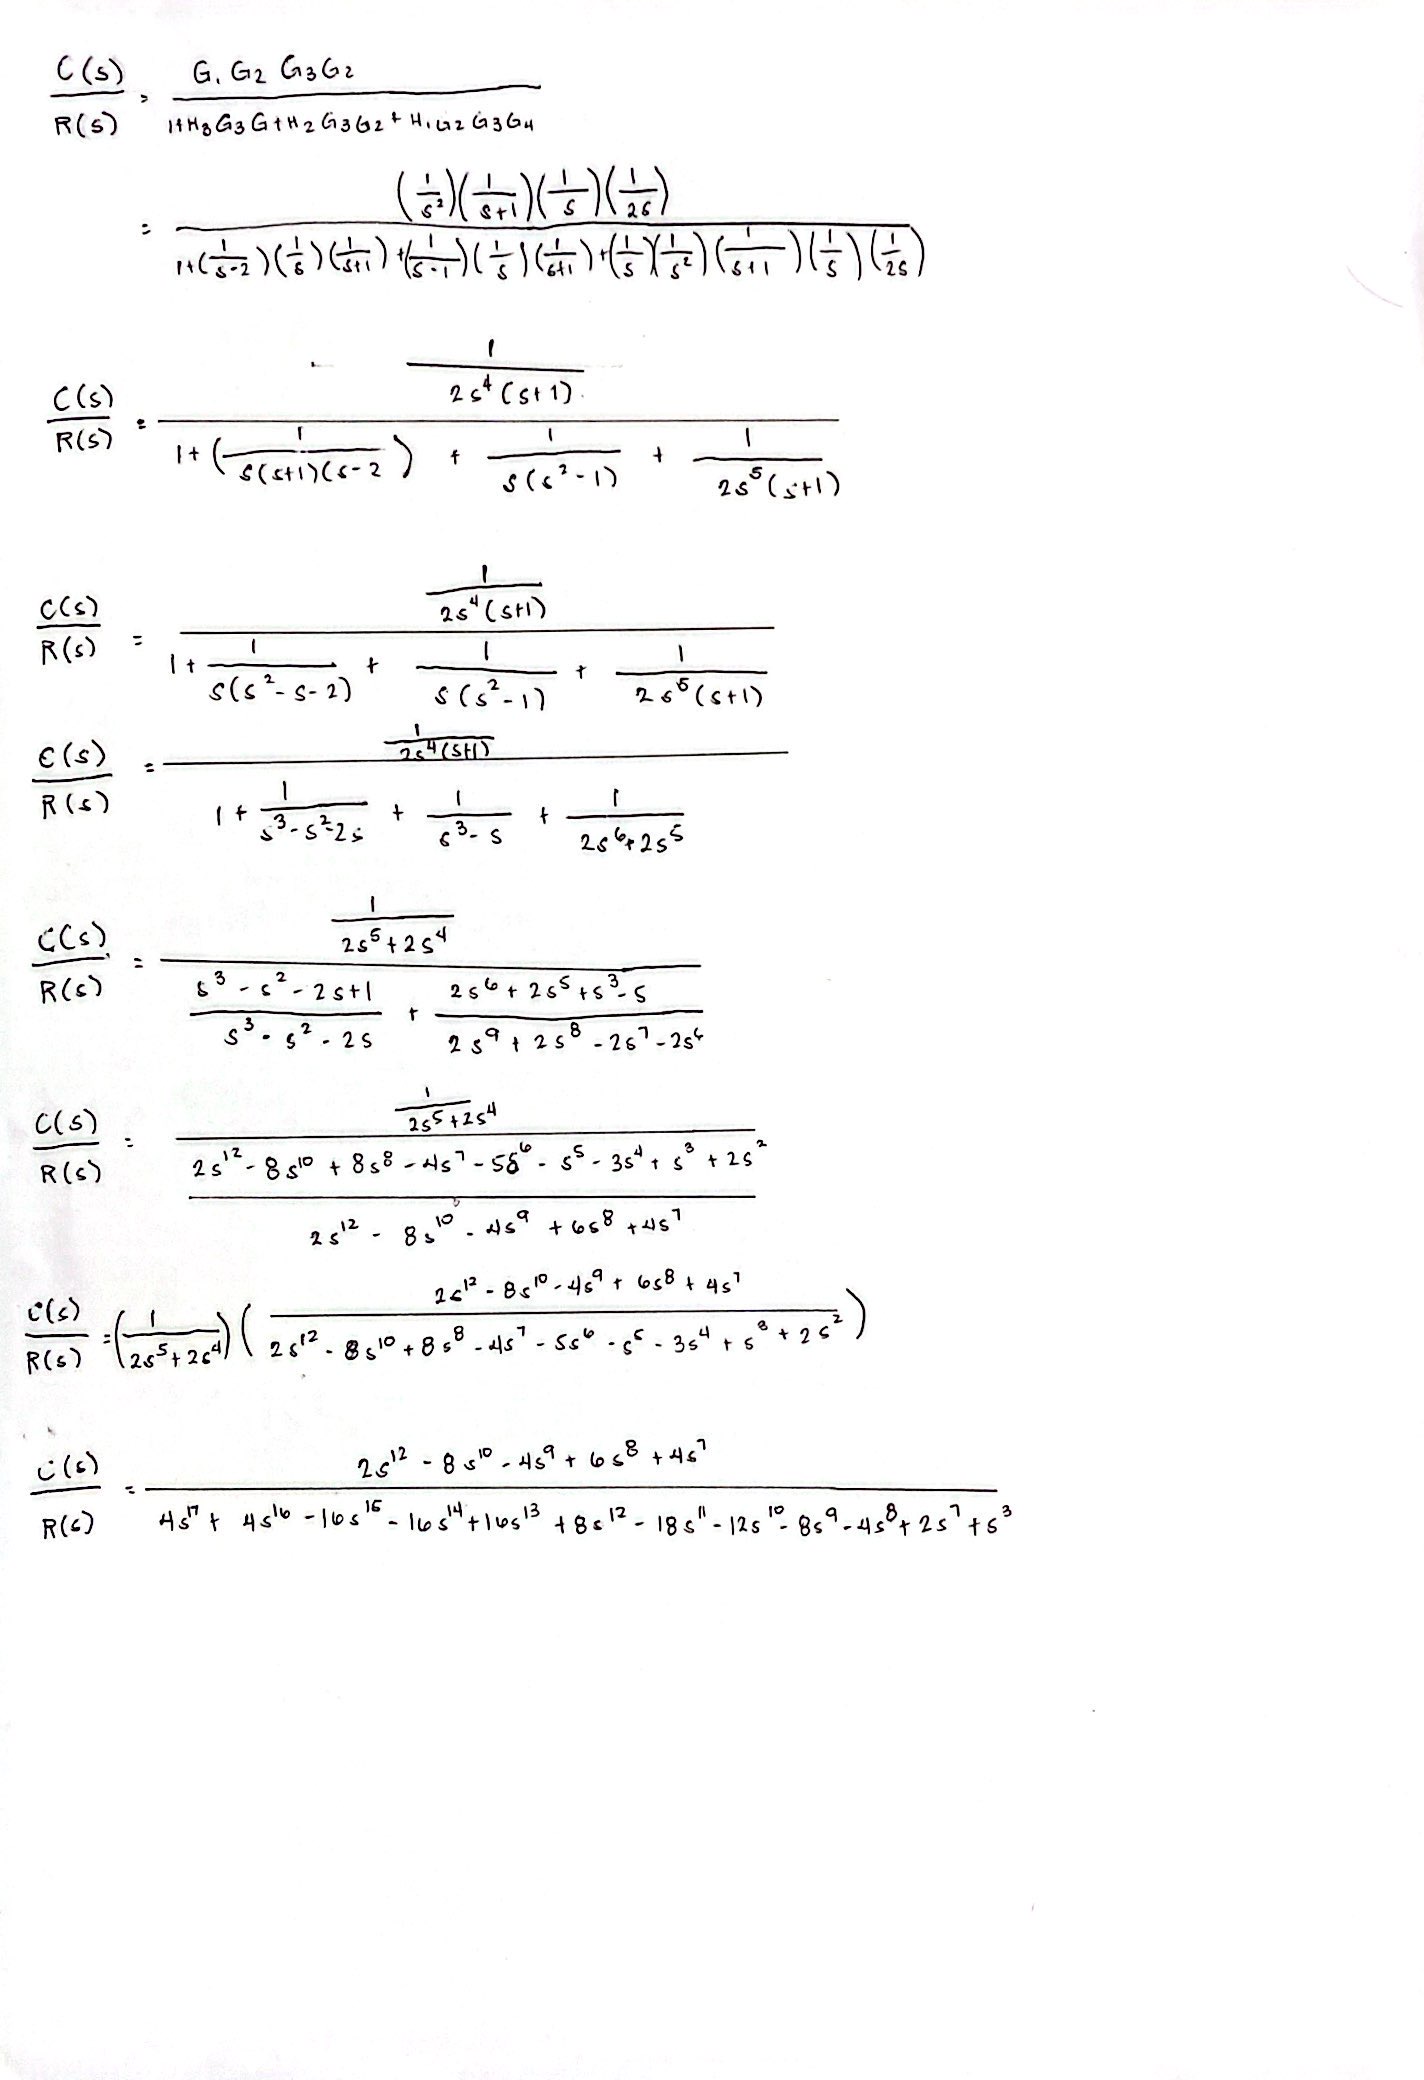 C(s)/R(s) = G₁ G₂ G₃ G₂ / 1+H₃ G₃ G + H₂ G₃ G₂ + H₁ G₂ G₃ G₄
= (1/s²)(1/s+1)(1/s)(1/2s) / 1+(1/s-2)(1/s)(1/s+1) + (1/s-1)(1/s)(1/s+1) + (1/s)(1/s²)(1/s+1)(1/s)(1/2s)
C(s)/R(s) = 1/2s⁴(s+1) / 1+(1/s(s+1)(s-2) + 1/s(s²-1) + 1/2s⁵(s+1)
C(s)/R(s) = 1/2s⁴(s+1) / 1+ 1/s(s²-s-2) + 1/s(s²-1) + 1/2s⁵(s+1)
C(s)/R(s) = 1/2s⁴(s+1) / 1+ 1/s³-s²-2s + 1/s³-s + 1/2s⁶+2s⁵
C(s)/R(s) = 1/2s⁵+2s⁴ / s³-s²-2s+1/s³-s²-2s + 2s⁶+2s⁵+s³-s/2s⁹+2s⁸-2s⁷-2s⁶
C(s)/R(s) = 1/2s⁵+2s⁴ / 2s¹²-8s¹⁰+8s⁸-4s⁷-5s⁶-s⁵-3s⁴+s³+2s² / 2s¹²-8s¹⁰-4s⁹+6s⁸+4s⁷
C(s)/R(s) = (1/2s⁵+2s⁴)(2s¹²-8s¹⁰-4s⁹+6s⁸+4s⁷ / 2s¹²-8s¹⁰+8s⁸-4s⁷-5s⁶-s⁵-3s⁴+s³+2s²)
C(s)/R(s) = 2s¹²-8s¹⁰-4s⁹+6s⁸+4s⁷ / 4s¹⁷+4s¹⁶-16s¹⁵-16s¹⁴+16s¹³+8s¹²-18s¹¹-12s¹⁰-8s⁹-4s⁸+2s⁷+s³